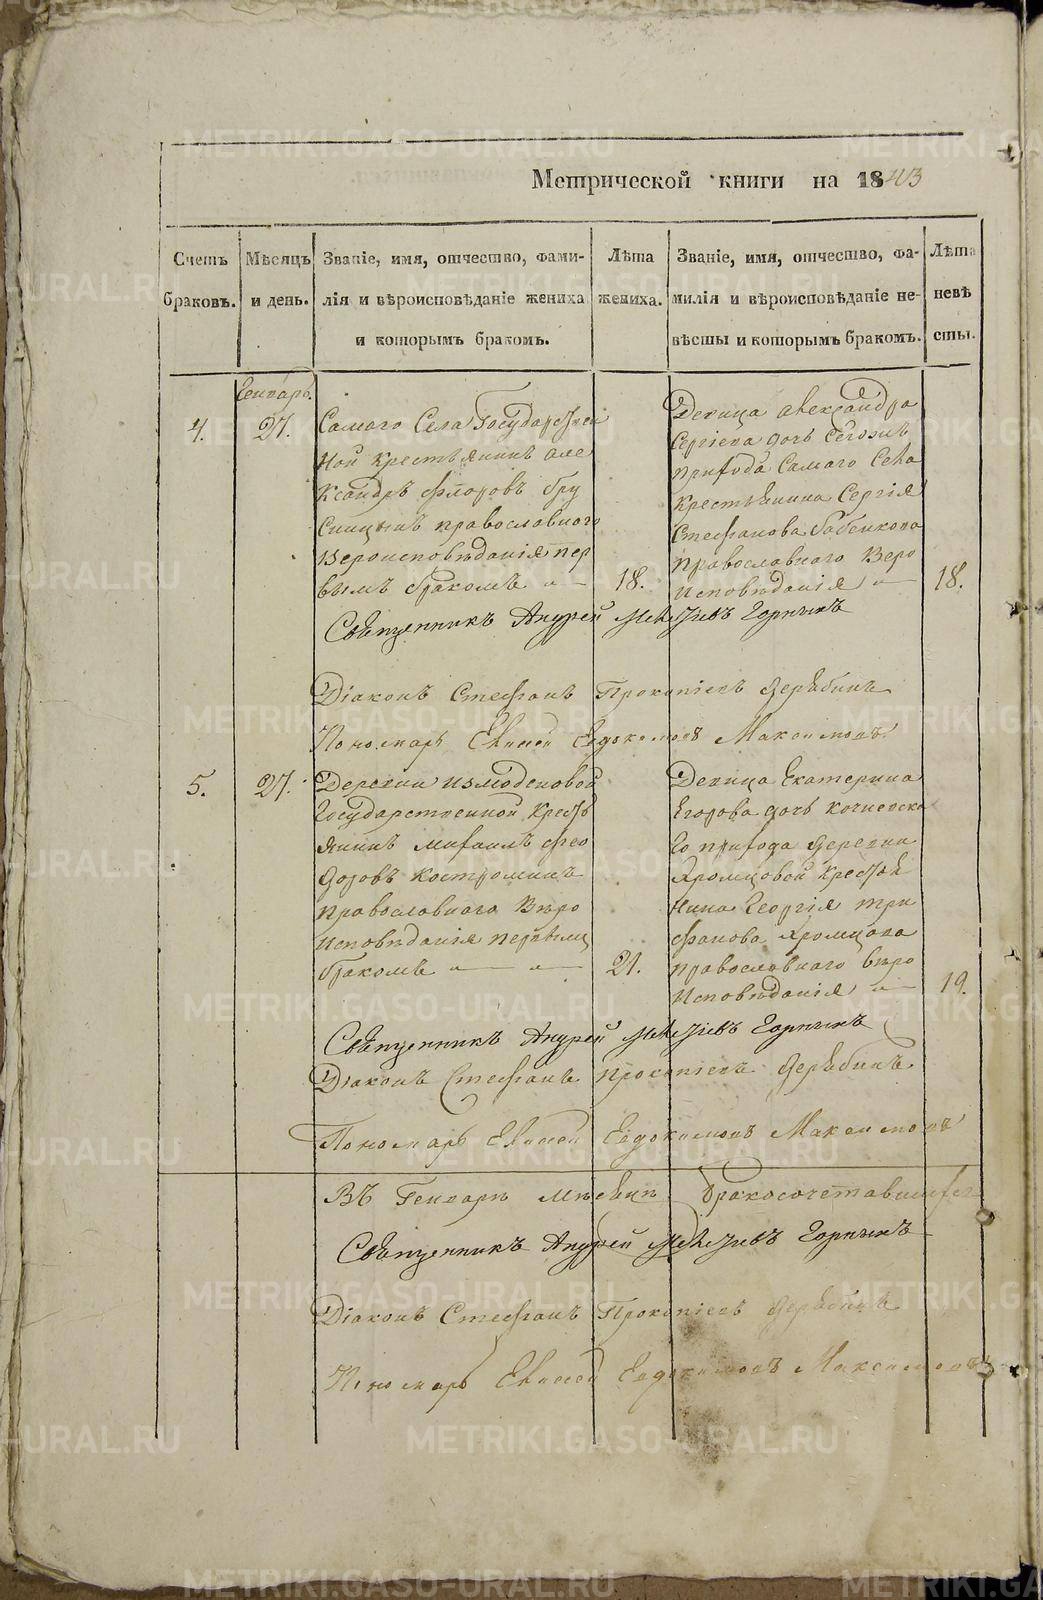 Метрической книги на 1843
Счетъ браковъ.
Мѣсяцъ и день.
Званіе, имя, отчество, фами-
лія и вѣроисповѣданіе жениха
и которымъ бракомъ.
Лѣта жениха.
Званіе, имя, отчество, фа-
милія и вѣроисповѣданіе не-
вѣсты и которымъ бракомъ.
Лѣта невѣ
сты.
Генварь
4.
27.
Самаго Села Государствен
ной крестьянинъ але
ксандръ Флоровъ бру
сницынъ православного
вероисповѣданія пер
вымъ бракомъ
18.
Девица александра
Сергіева дочь
прихода Самаго Села
крестьянина Сергія
Стефанова бабенкова
православнаго Веро
исповѣданія
18.
Священникъ Андрей
Діаконъ Стефанъ Прокопіевъ Дерябинъ
Пономарь Елисей Евдокимовъ Максимовъ
5.
27.
Деревни измоденовой
Государственной кресть
янинъ михаилъ фео
доровъ костроминъ
православнаго Вѣро
исповѣданія первымъ
бракомъ
21.
Девица Екатерина
Егорова дочь кочневска
го прихода деревни
Яромцовой крестья
нина Георгія три
фанова Яромцова
православнаго вѣро
исповѣданія
19.
Священникъ Андрей
Діаконъ Стефанъ Прокопіевъ Дерябинъ
Пономарь Елисей Евдокимовъ Максимовъ
Въ Генварѣ мѣсяцѣ бракосочетавшихся
Священникъ Андрей
Діаконъ Стефанъ Прокопіевъ Дерябинъ
Пономарь Елисей Евдокимовъ Максимовъ
METRIKI.GASO-URAL.RU